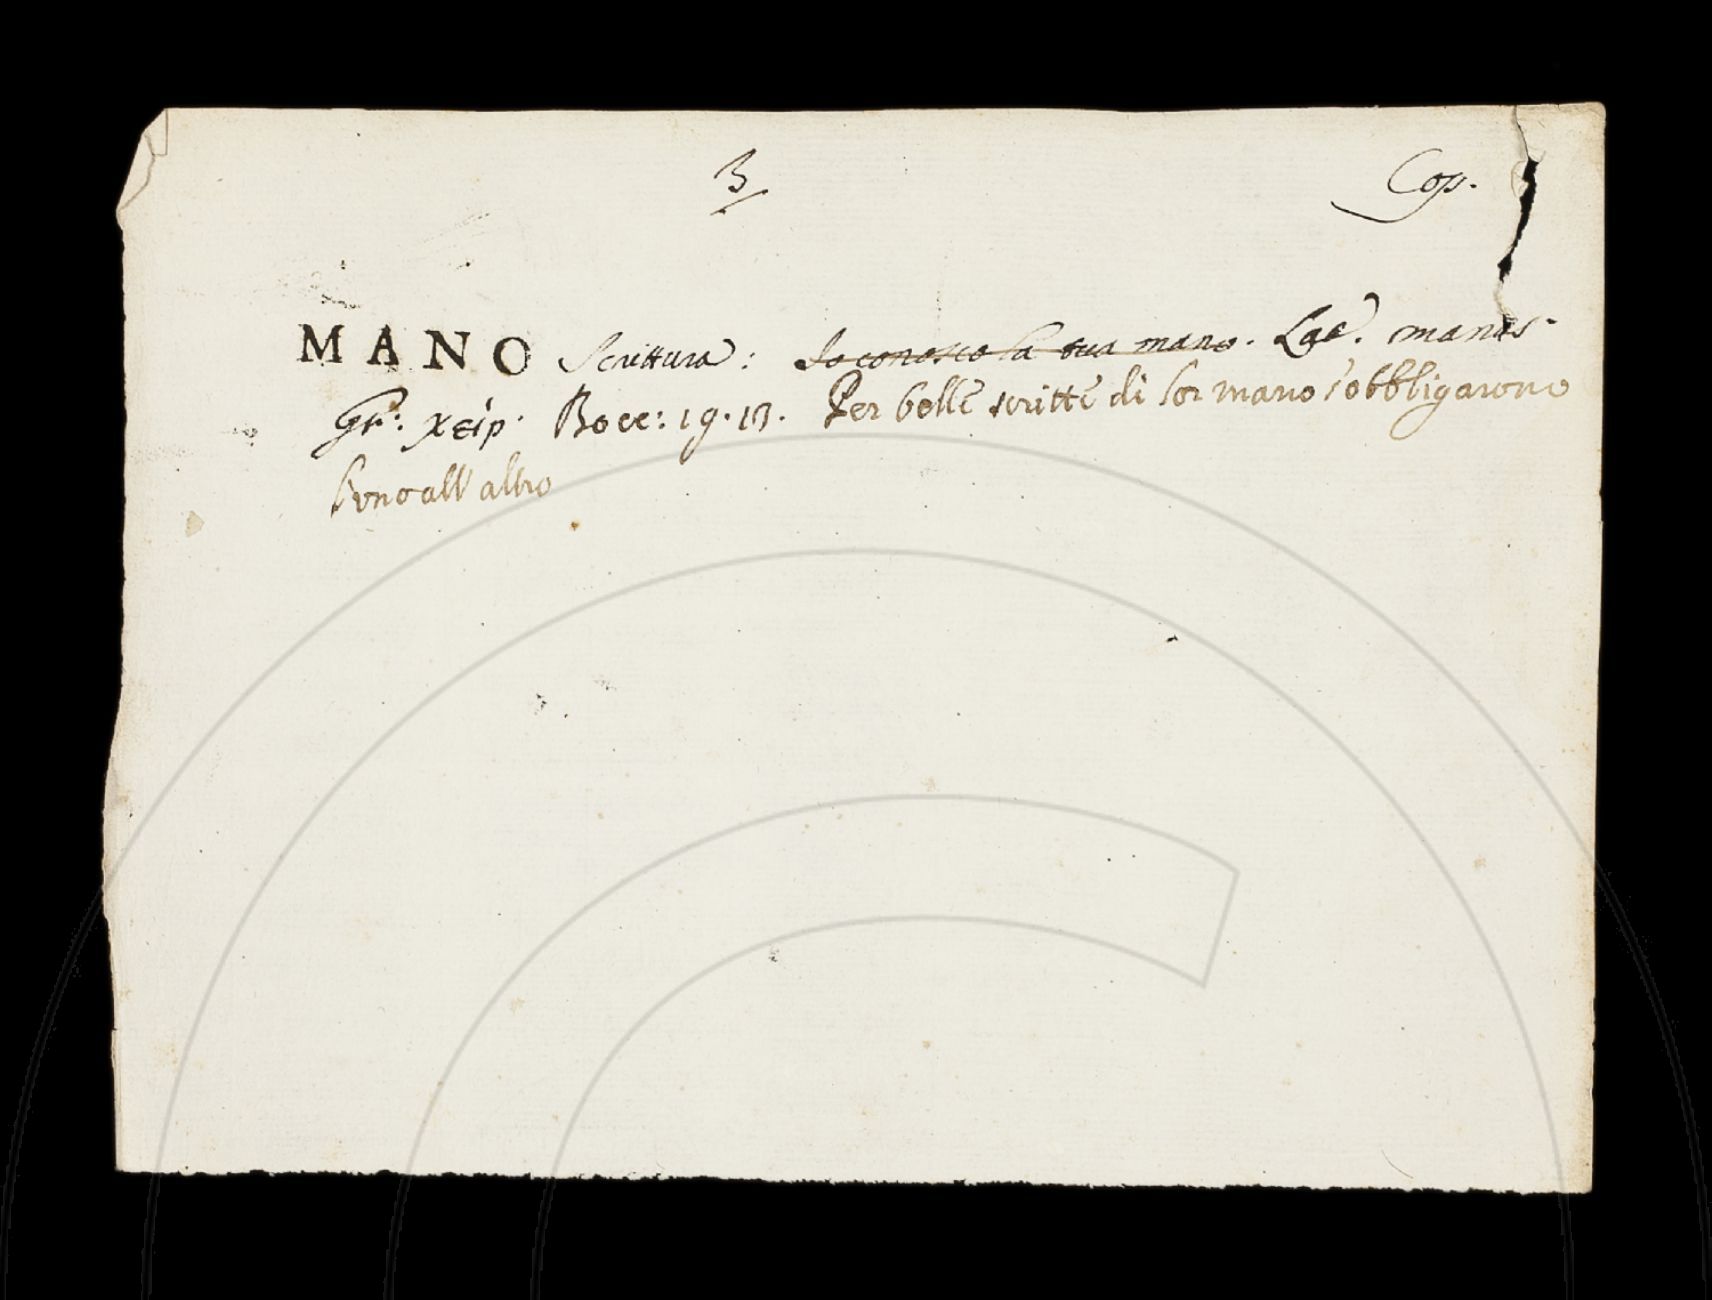 3 Cop.
MANO Scrittura: Io conosco la sua mano. Lat. manus.
Gr: χείρ. Bocc: 19.13. Per belle scritte di lor mano s'obbligarono
l'uno all'altro